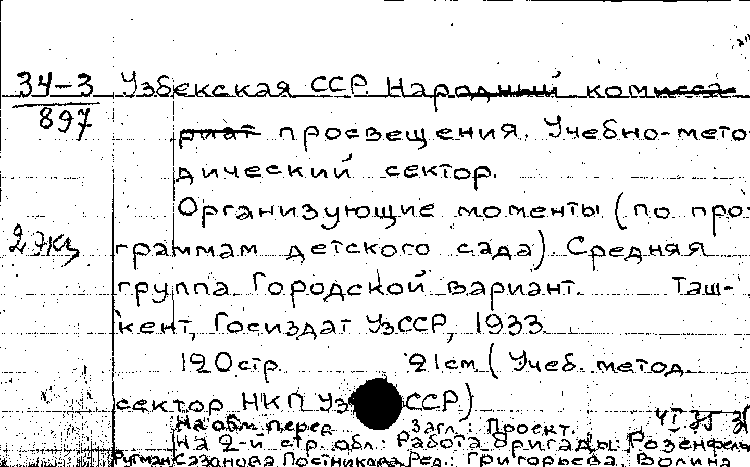 34-3 Узбекская ССР. Народный комисса-
897
риат просвещения. Учебно-мето-
дический сектор.
Организующие моменты (по про-
2 экз граммам детского сада). Средняя
группа. Городской вариант. Таш-
кент, Госиздат УзССР, 1933
120 стр. 21 см (Учеб. метод.
сектор НКП Уз ССР)
На обл. перед загл.: Проект.
На 2-й стр. обл.: Работа бригады: Розенфель
Сазанова Постникова Ред.: Григорьева, Волина